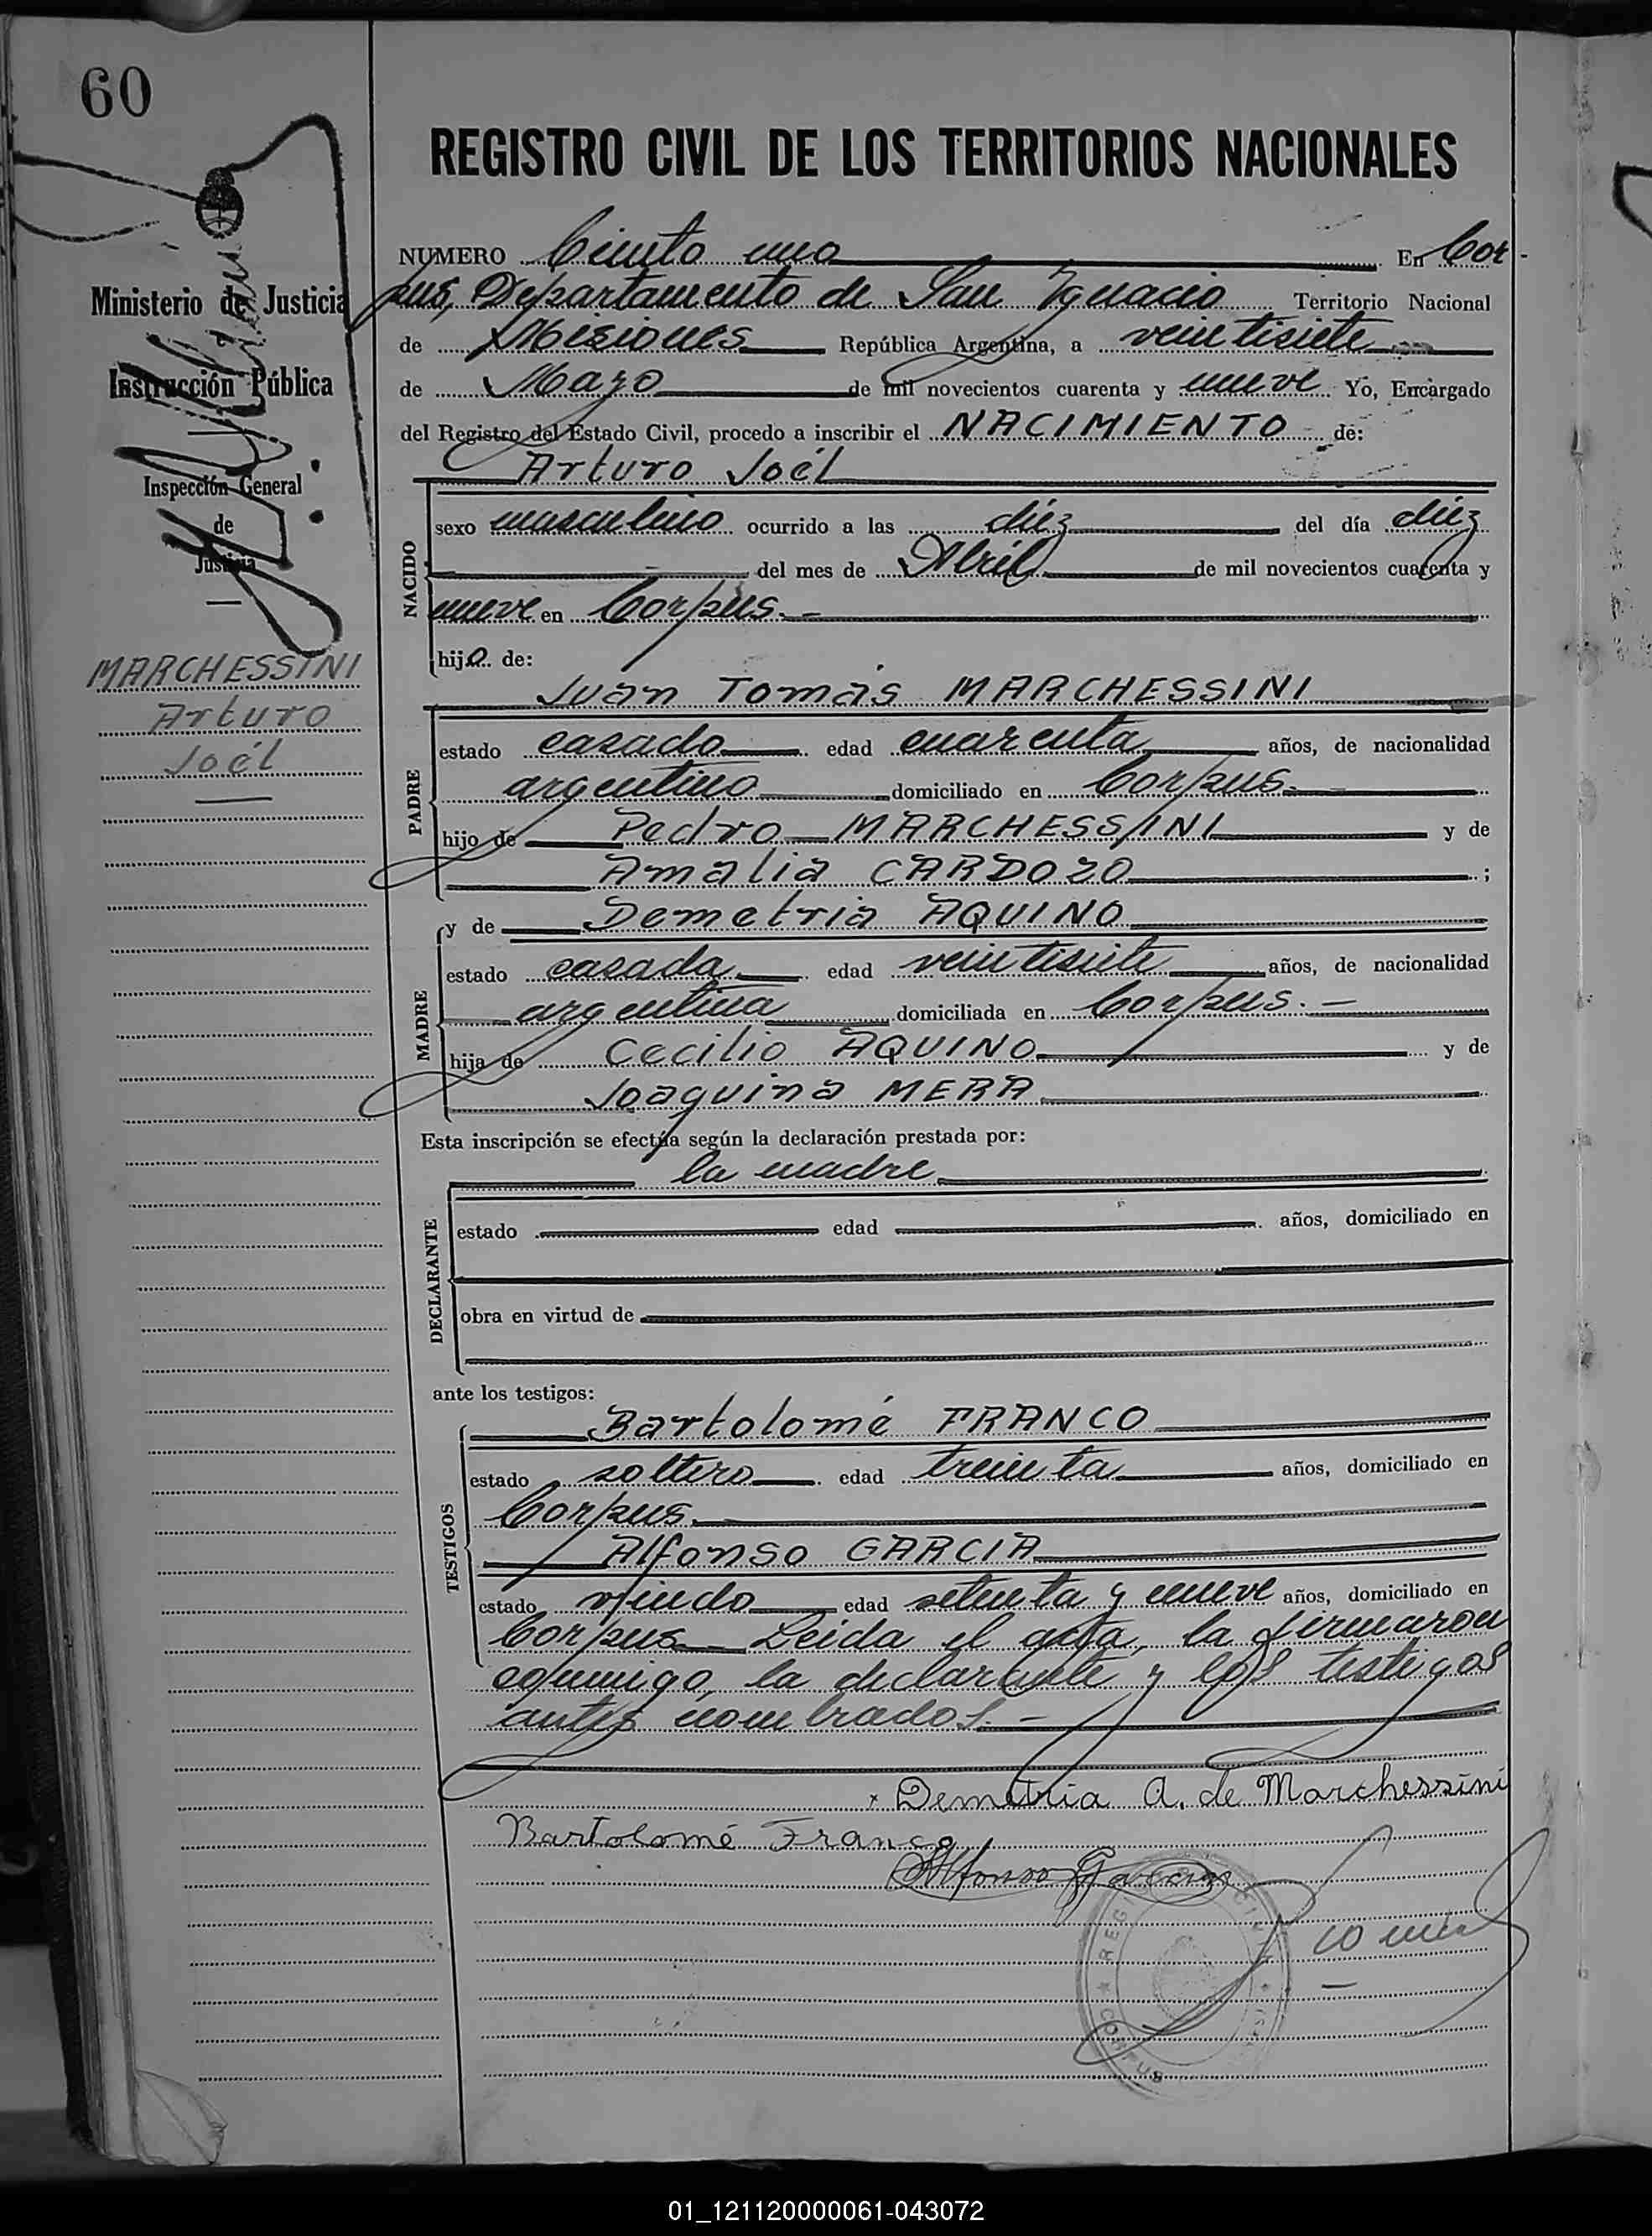 60
REGISTRO CIVIL DE LOS TERRITORIOS NACIONALES
NUMERO Ciento uno En Cor-
pus, Departamento de San Ignacio Territorio Nacional
de Misiones República Argentina, a veintisiete
de Mayo de mil novecientos cuarenta y nueve Yo, Encargado
del Registro del Estado Civil, procedo a inscribir el NACIMIENTO de:
Arturo Joél
Ministerio de Justicia
Instrucción Pública
Inspección General
de
Justicia
MARCHESSINI
Arturo
Joél
NACIDO
sexo masculino ocurrido a las diéz del día diéz
del mes de Abril de mil novecientos cuarenta y
nueve en Corpus.-
hijo de:
Juan Tomás MARCHESSINI
PADRE
estado casado edad cuarenta años, de nacionalidad
argentino domiciliado en Corpus.
hijo de Pedro MARCHESSINI y de
Amalia CARDOZO ;
y de Demetria AQUINO
MADRE
estado casada edad veintisiete años, de nacionalidad
argentina domiciliada en Corpus.-
hija de Cecilio AQUINO y de
Joaquina MERA
Esta inscripción se efectúa según la declaración prestada por:
la madre
DECLARANTE
estado edad años, domiciliado en
obra en virtud de
ante los testigos:
Bartolomé FRANCO
TESTIGOS
estado soltero edad treinta años, domiciliado en
Corpus.
Alfonso GARCIA
estado viudo edad setenta y nueve años, domiciliado en
Corpus Leida el acta, la firmaron
conmigo, la declarante y los testigos
antes nombrados.-
Demetria A. de Marchessini
Bartolomé Franco
Alfonso Garcia
REG CIVIL
CORPUS
01_121120000061-043072